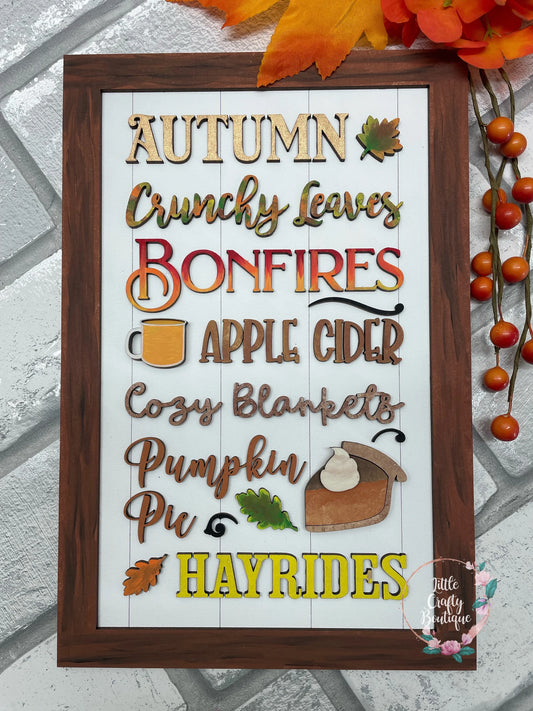 AUTUMN
Crunchy Leaves
BONFIRES
APPLE CIDER
Cozy Blankets
Pumpkin
Pie
HAYRIDES
Little
Crafty
Boutique